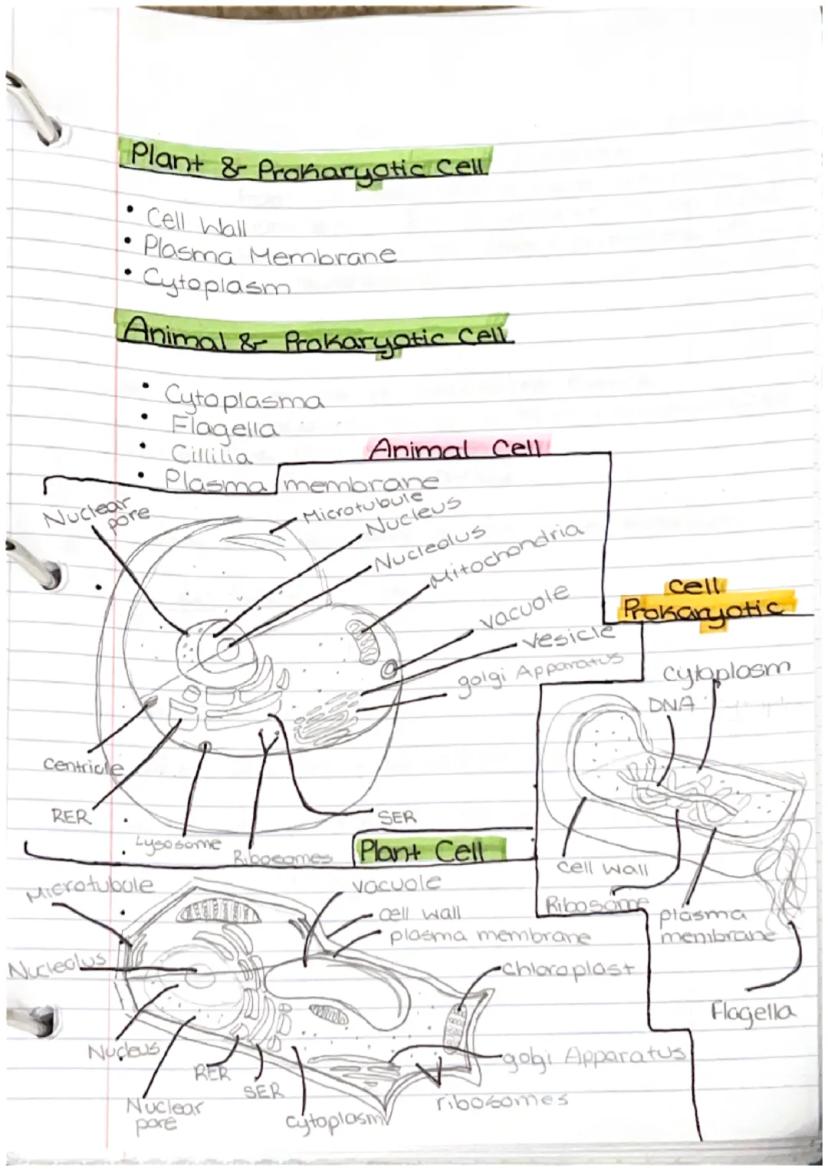 Plant & Prokaryotic Cell
• Cell Wall
• Plasma Membrane
• Cytoplasm
Animal & Prokaryotic Cell
• Cytoplasma
• Flagella
• Cillilia
• Plasma membrane
Animal Cell
Nuclear pore
Microtubule
Nucleus
Nucleolus
Mitochondria
vacuole
vesicle
golgi Apparatus
Centriole
RER
Lysosome
Ribosomes
SER
Cell
Prokaryotic
Cytoplasm
DNA
Cell wall
Ribosome
plasma
membrane
Flagella
Plant Cell
Microtubule
Nucleolus
Nucleus
Nuclear
pore
RER
SER
Cytoplasm
vacuole
cell wall
plasma membrane
Chloroplast
golgi Apparatus
ribosomes